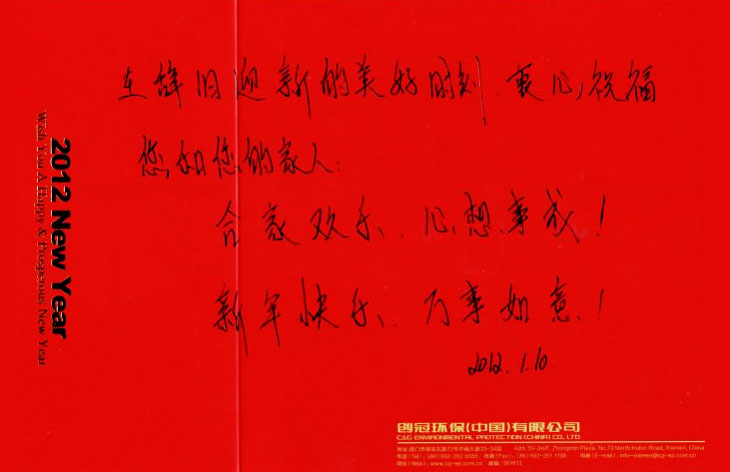 在辞旧迎新的美好时刻.衷心祝福
您和您的家人:
合家欢乐、心想事成!
新年快乐、万事如意!
2012.1.10
2012 New Year
Wish You A Happy & Prosperous New Year
创冠环保(中国)有限公司
C&G ENVIRONMENTAL PROTECTION (CHINA) CO., LTD.